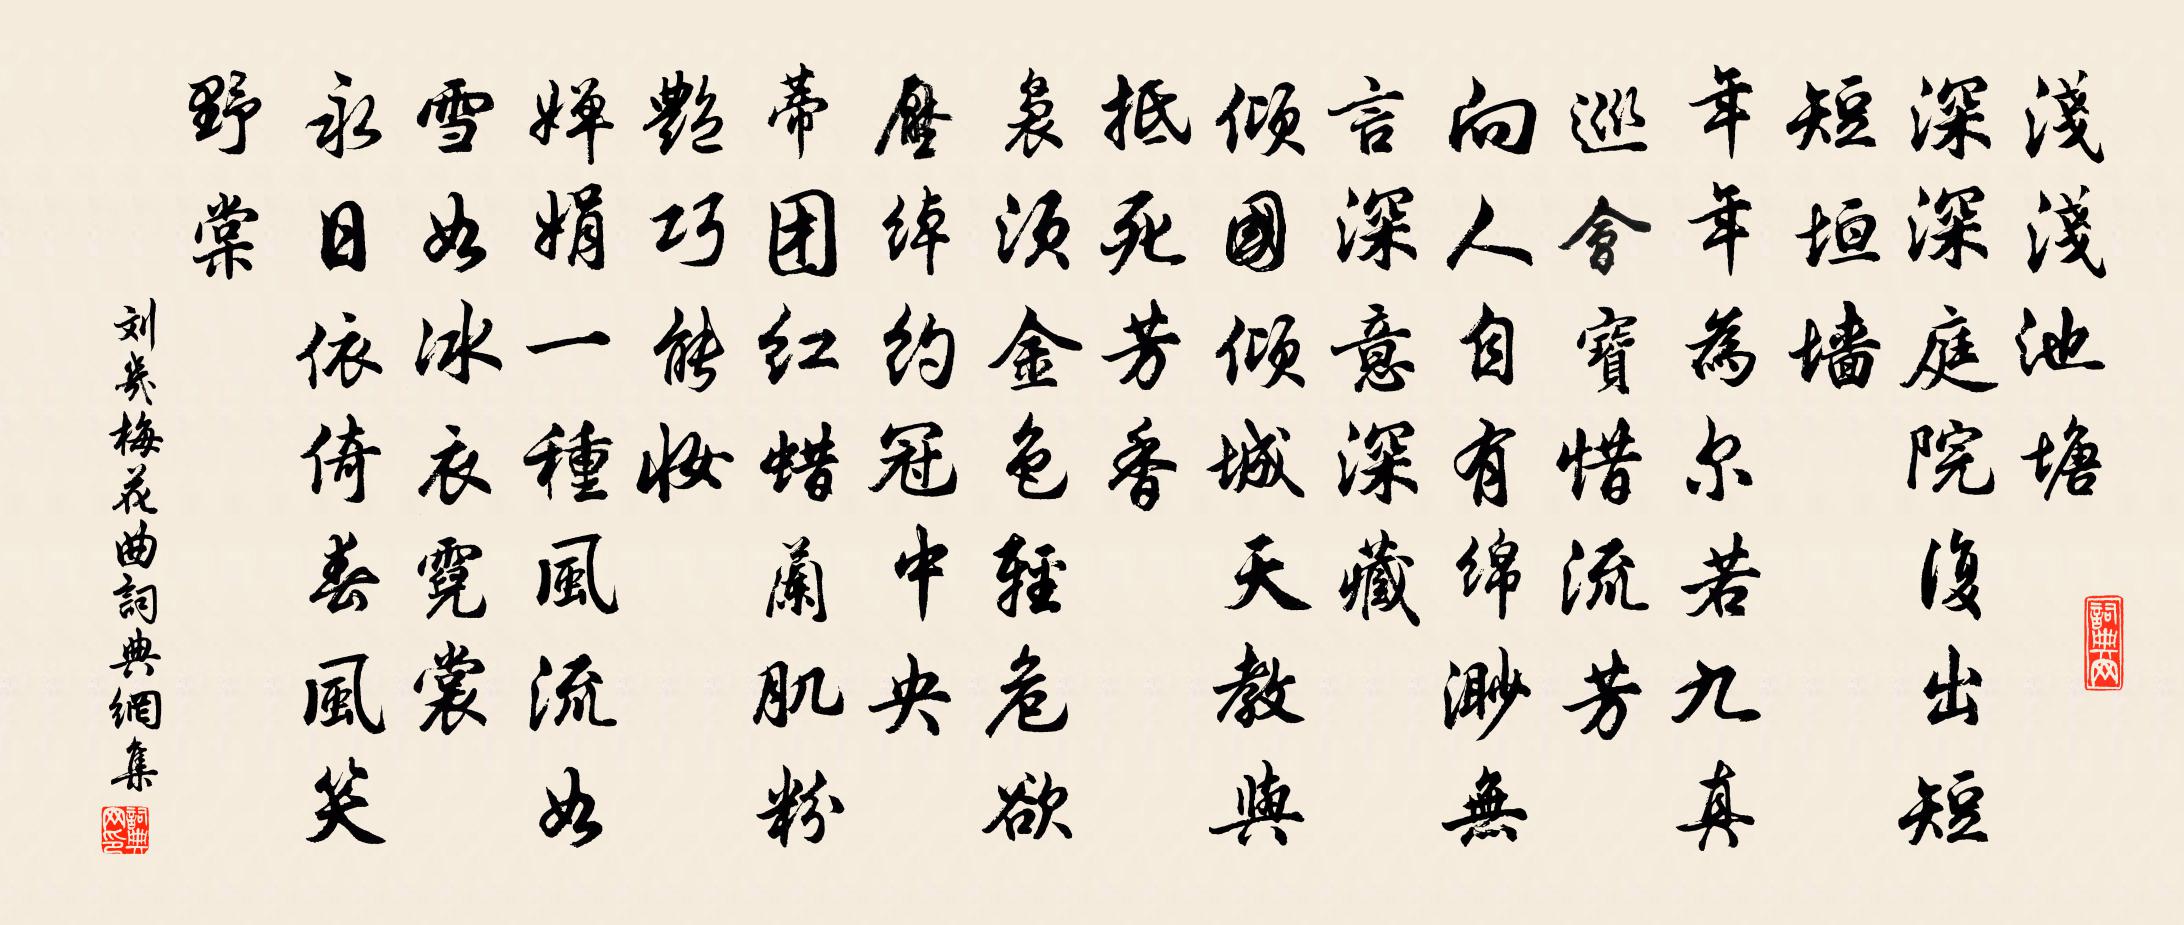 淺淺池塘
深深庭院復出短
短垣墻
年年為尔若九真
巡會寶惜流芳
向人自有綿渺無
言深意深藏
傾國傾城天教與
抵死芳香
裊須金色輕危欲
壓綽約冠中央
蒂团紅蜡蘭肌粉
艷巧能妝
嬋娟一種風流如
雪如冰衣霓裳
永日依倚春風笑
野棠
刘幾梅花曲詞典網集
詞典网
詞典网印